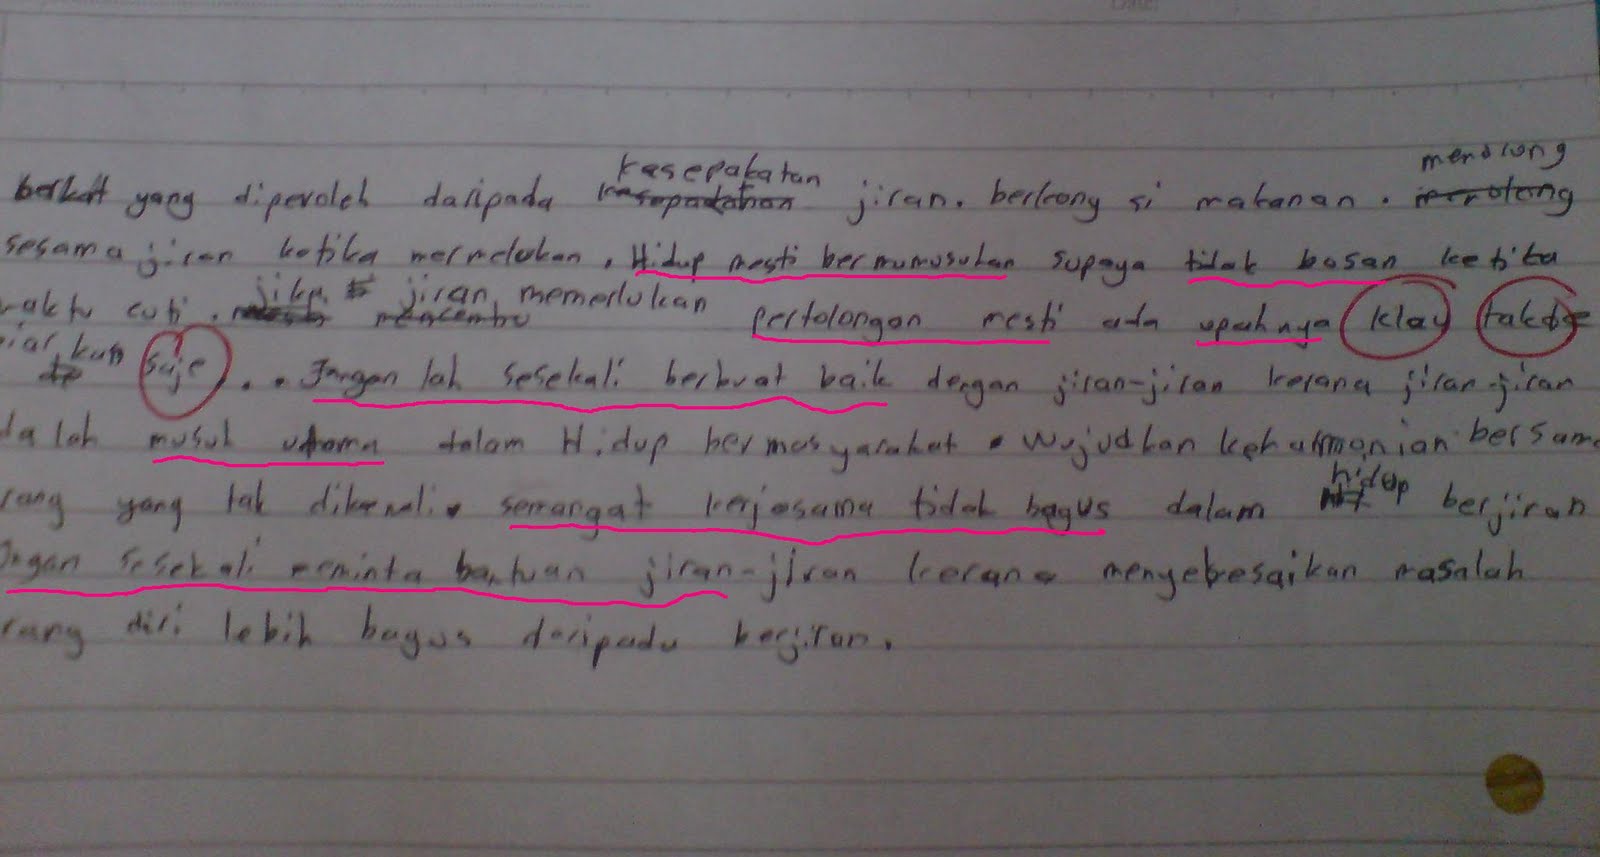 kesepakatan menolong
berkat yang diperoleh daripada kesepadatan jiran. berkong si makanan. menolong
sesama jiran ketika mermelukan. Hidup mesti bermumusuhan supaya tidak bosan ketika
waktu cuti. jika jiran memerlukan pertolongan mesti ada upahnya klau takde
biar kan saje.. Jangan lah sesekali berbuat baik dengan jiran-jiran kerana jiran-jiran
dalah musuh utama dalam Hidup bermasyarakat. Wujudkan keharmonian bersama
hidup
rang yang tak dikenali. semangat kerjasama tidak bagus dalam berjiran
Jngan sesekali meminta bantuan jiran-jiran kerana menyebesaikan masalah
rang diri lebih bagus daripada berjiran.